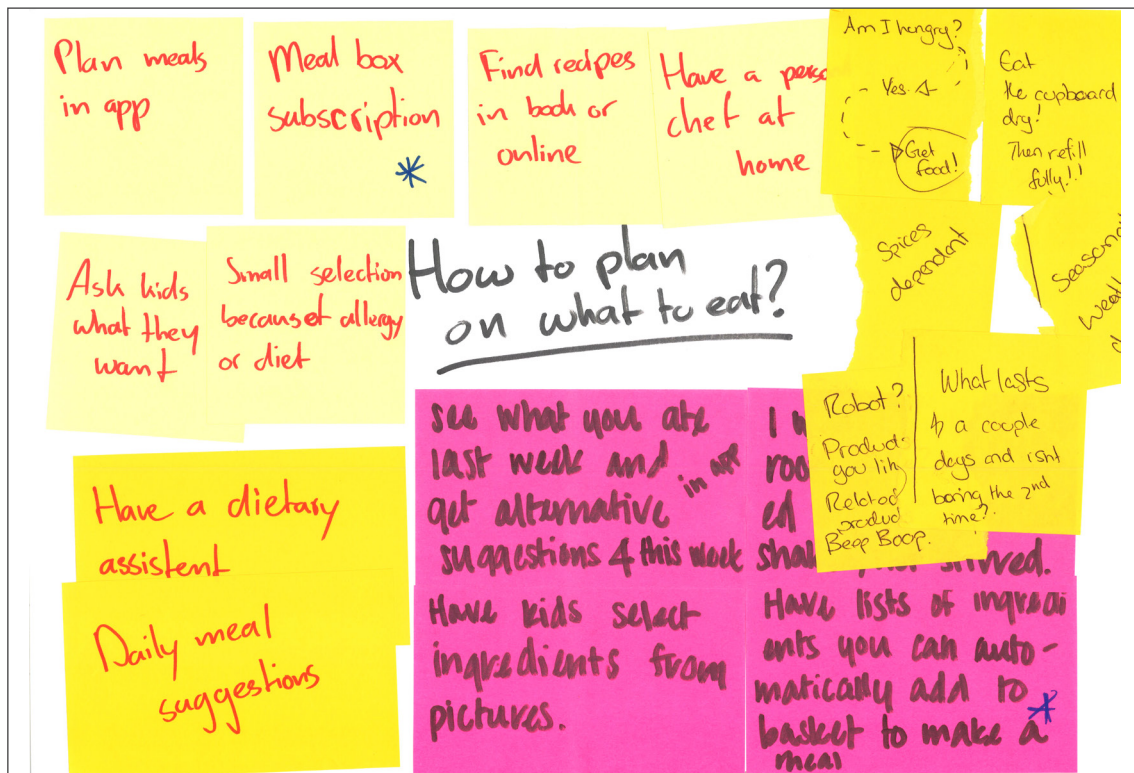 Plan meals
in app
Meal box
subscription
Find recipes
in book or
online
Have a
chef at
home
Am I hungry?
Yes.
Get
food!
Eat
the cupboard
dry!
Then refill
fully!!!
Ask kids
what they
want
Small selection
because of allergy
or diet
How to plan
on what to eat?
Spices
dependent
Robot?
you
Related
Beep Boop.
What lasts
4 a couple
days and isnt
boring the 2nd
time?
Have a dietary
assistent
Daily meal
suggestions
see what you ate
last week and
in app
get alternative
suggestions 4 this week
I
Have kids select
ingredients from
pictures.
Have lists of ingredi
ents you can auto-
matically add to
basket to make a
meal